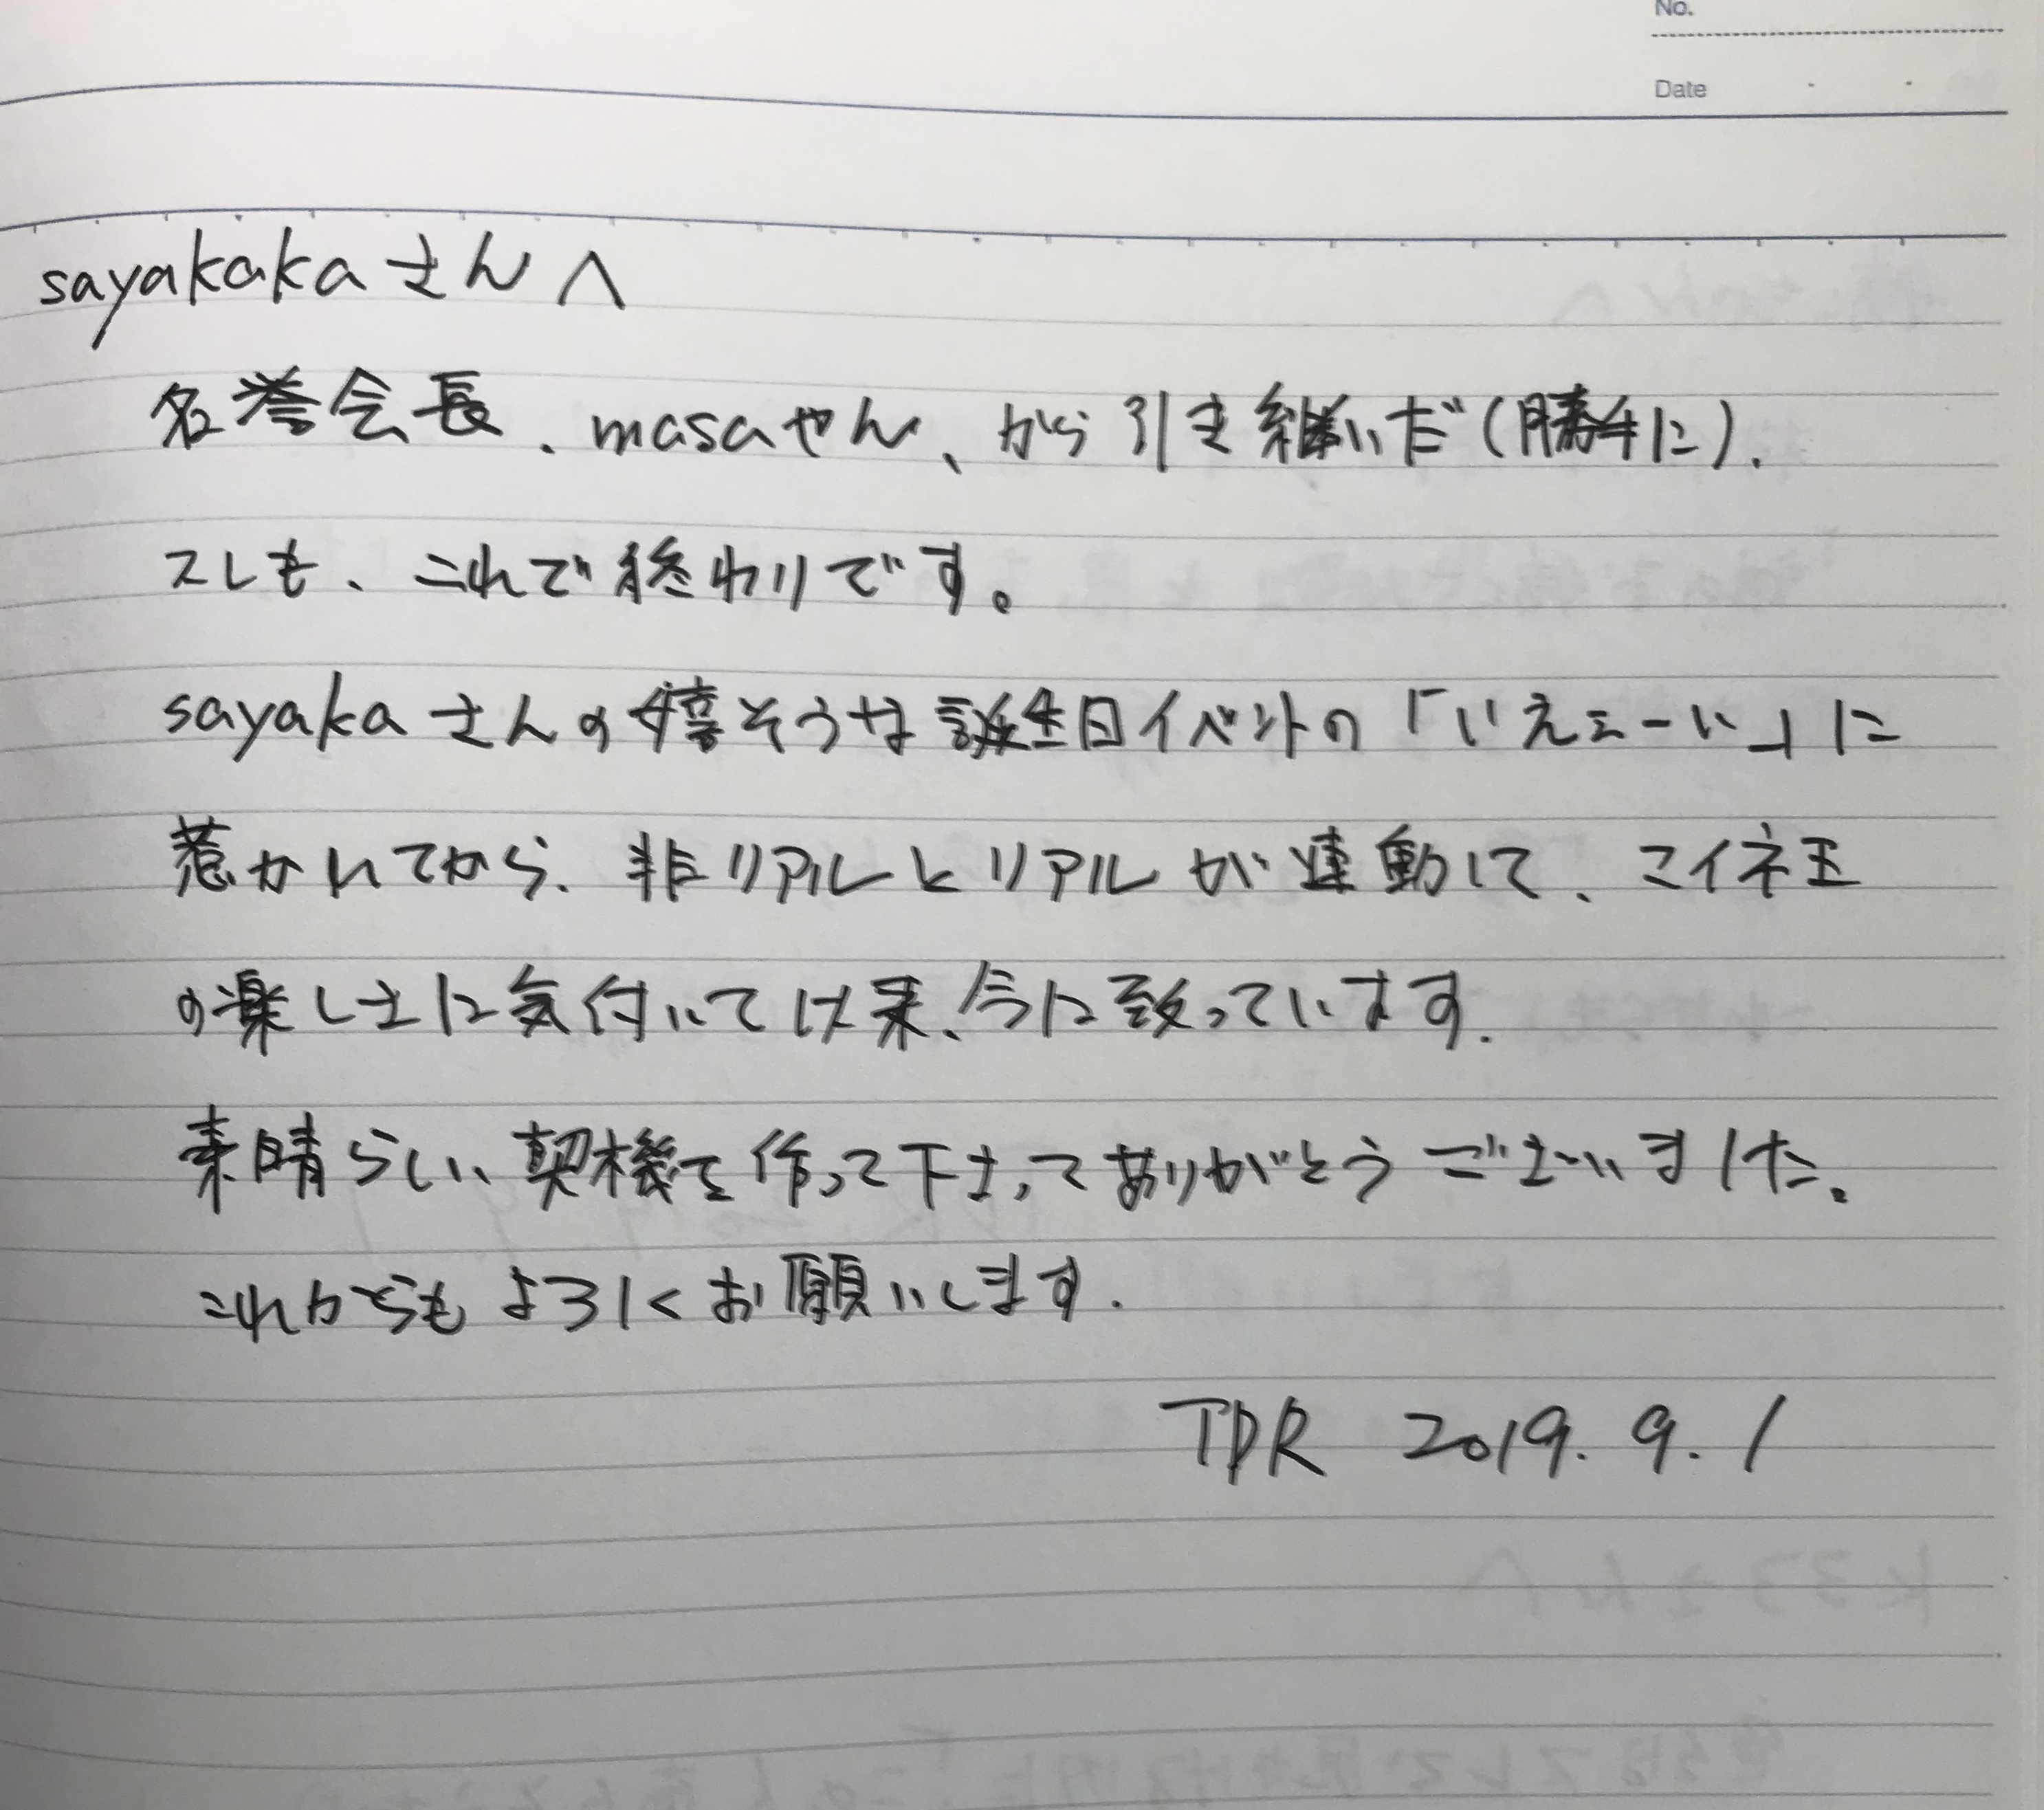 No.
Date
sayakakaさんへ
名誉会長、masaやん、から引き継いだ(勝手に).
スレも、これで終わりです。
sayakaさんの嬉そうな誕生日イベントの「いえェーい」に
惹かれてから、非リアルとリアルが連動して、マイネ王
の楽しさに気付いて以来、今に致っています.
素晴らしい契機を作って下さってありがとうございました。
これからもよろしくお願いします.
TDR 2019.9.1